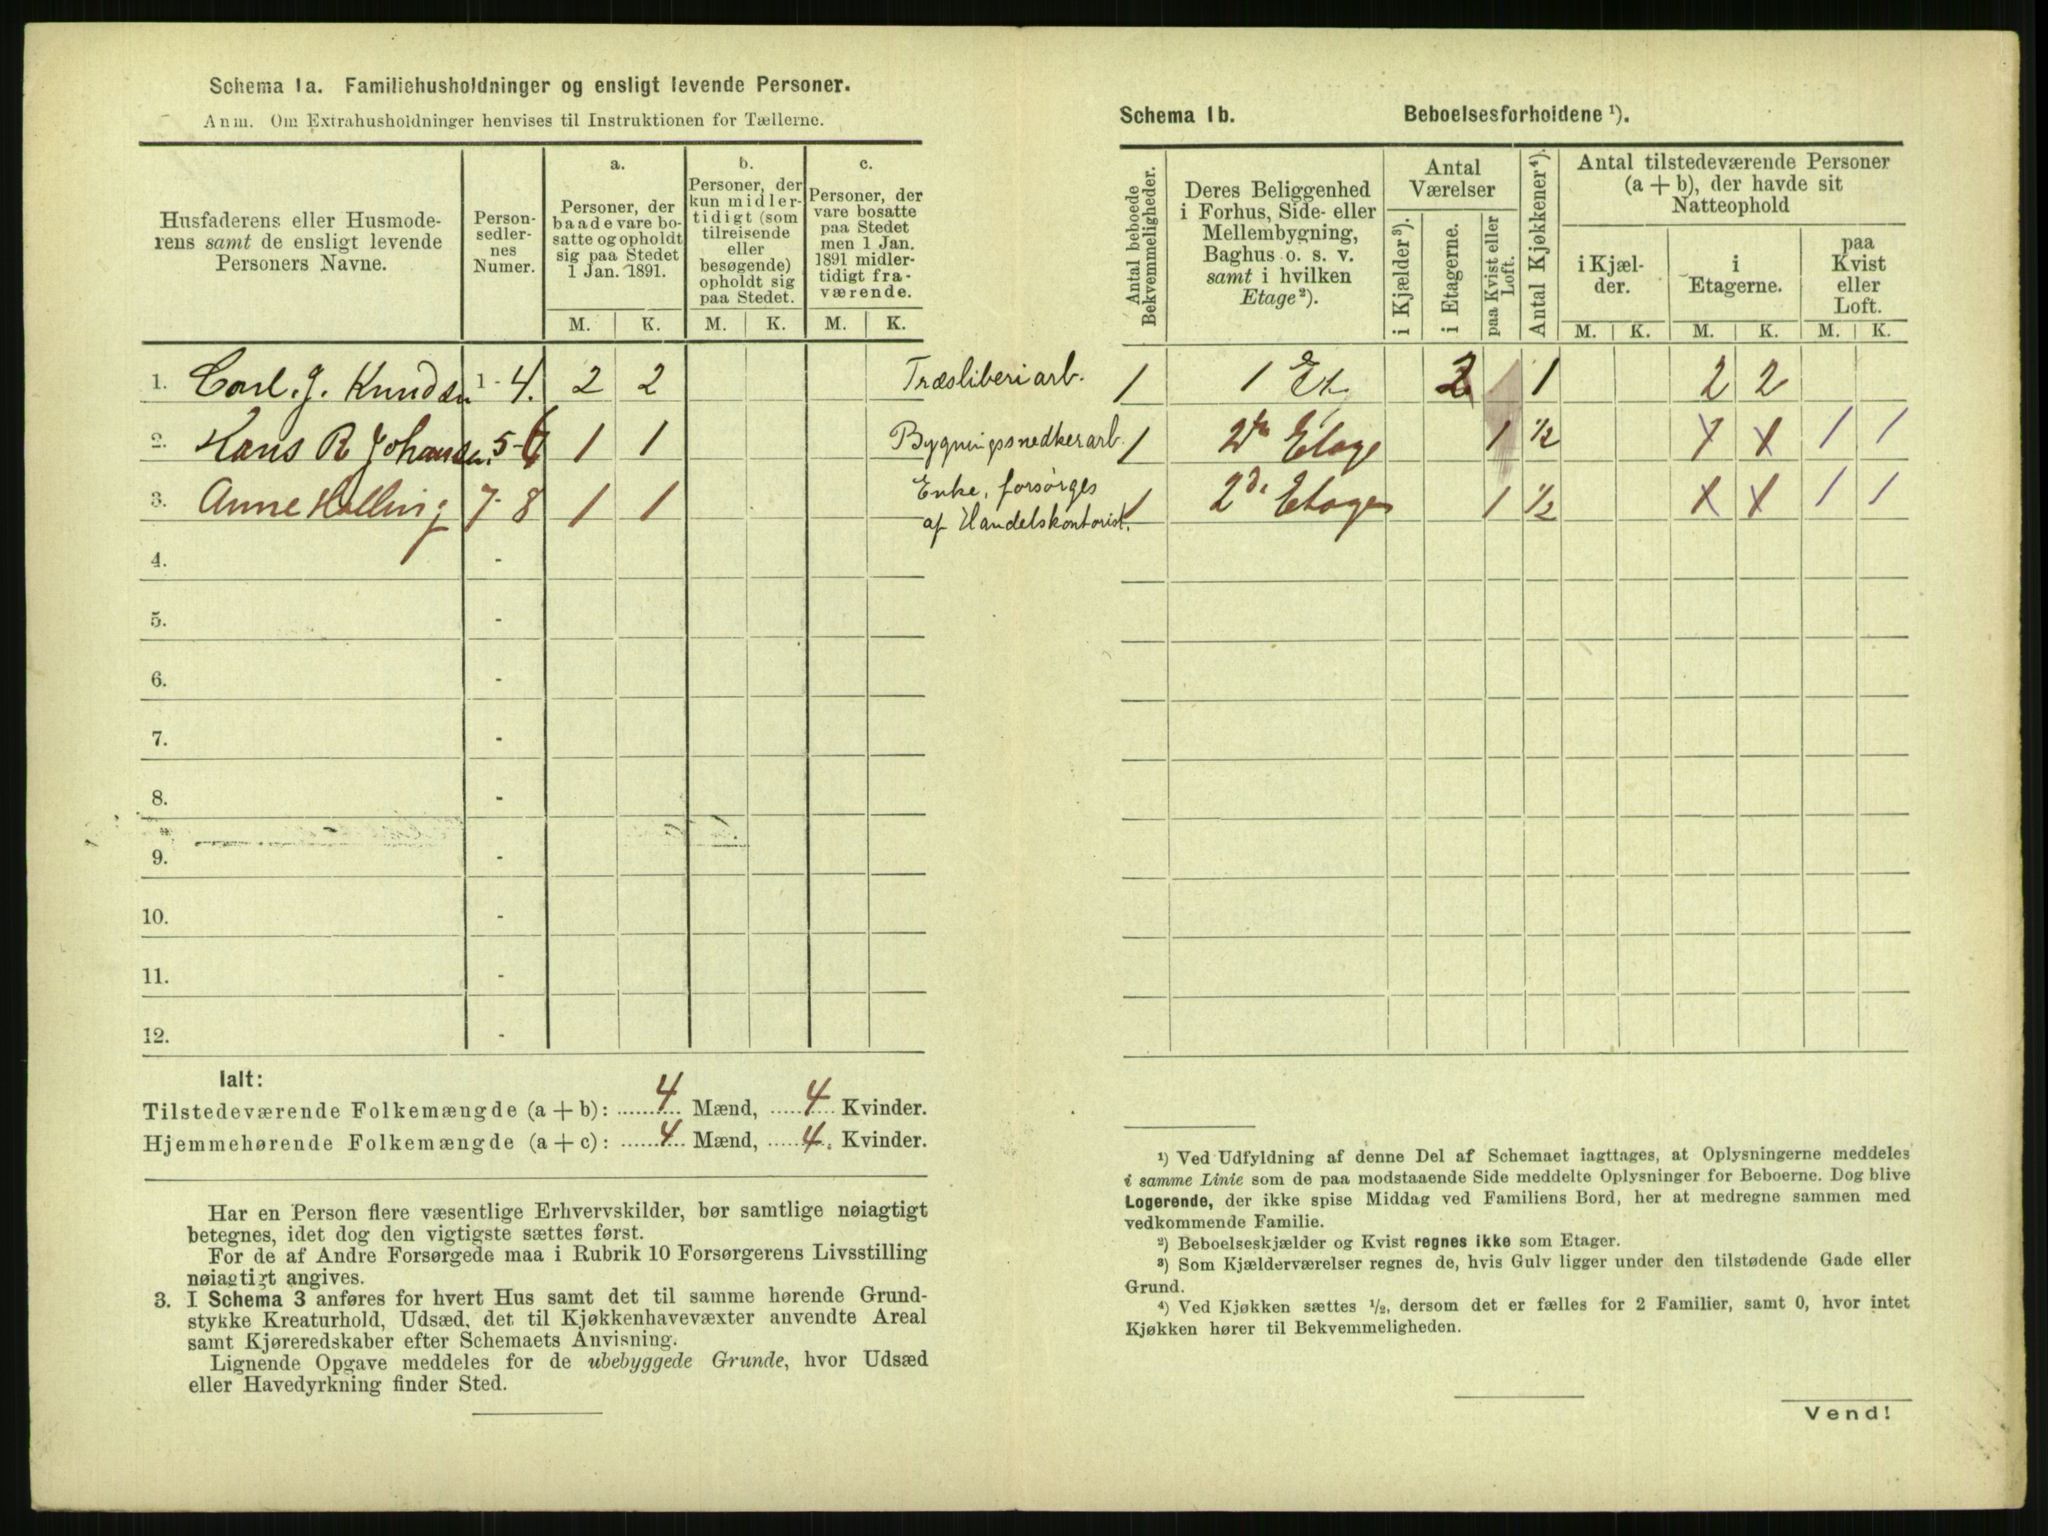 Schema 1a. Familiehusholdninger og ensligt levende Personer.
Anm. Om Extrahusholdninger henvises til Instruktionen for Tællerne.
Husfaderens eller Husmode-
rens samt de ensligt levende
Personers Navne.
Person-
sedler-
nes
Numer.
a.
Personer, der
baade vare bo-
satte og opholdt
sig paa Stedet
1 Jan. 1891.
b.
Personer, der
kun midler-
tidigt (som
tilreisende
eller
besøgende)
opholdt sig
paa Stedet.
c.
Personer, der
vare bosatte
paa Stedet
men 1 Jan.
1891 midler-
tidigt fra-
værende.
M. K. M. K. M. K.
1. Carl. J. Knudsen 1 - 4. 2 2 Træsliberiarb.
2. Hans R Johansen. 5-6 1 1 Bygningssnedkerarb.
3. Anne Halling 7 - 8 1 1 Enke, forsørges
af Handelskontorist.
4. -
5. -
6. -
7. -
8. -
9. -
10. -
11. -
12. -
Ialt:
Tilstedeværende Folkemængde (a + b): 4 Mænd, 4 Kvinder.
Hjemmehørende Folkemængde (a + c): 4 Mænd, 4. Kvinder.
Har en Person flere væsentlige Erhvervskilder, bør samtlige nøiagtigt
betegnes, idet dog den vigtigste sættes først.
For de af Andre Forsørgede maa i Rubrik 10 Forsørgerens Livsstilling
nøiagtigt angives.
3. I Schema 3 anføres for hvert Hus samt det til samme hørende Grund-
stykke Kreaturhold, Udsæd, det til Kjøkkenhavevæxter anvendte Areal
samt Kjøreredskaber efter Schemaets Anvisning.
Lignende Opgave meddeles for de ubebyggede Grunde, hvor Udsæd
eller Havedyrkning finder Sted.
Schema 1b. Beboelsesforholdene ¹).
Antal beboede
Bekvemmeligheder.
Deres Beliggenhed
i Forhus, Side- eller
Mellembygning,
Baghus o. s. v.
samt i hvilken
Etage²).
Antal
Værelser
i Kjælder³).
i Etagerne.
paa Kvist eller
Loft.
Antal Kjøkkener⁴).
Antal tilstedeværende Personer
(a + b), der havde sit
Natteophold
i Kjæl-
der.
i
Etagerne.
paa
Kvist
eller
Loft.
M. K. M. K. M. K.
1 1 Et. 2 1 2 2
1 2den Etage 1 ½ 1 1 1 1
1 2d. Etage 1 ½ 1 1 1 1
¹) Ved Udfyldning af denne Del af Schemaet iagttages, at Oplysningerne meddeles
i samme Linie som de paa modstaaende Side meddelte Oplysninger for Beboerne. Dog blive
Logerende, der ikke spise Middag ved Familiens Bord, her at medregne sammen med
vedkommende Familie.
²) Beboelseskjælder og Kvist regnes ikke som Etager.
³) Som Kjælderværelser regnes de, hvis Gulv ligger under den tilstødende Gade eller
Grund.
⁴) Ved Kjøkken sættes ½, dersom det er fælles for 2 Familier, samt 0, hvor intet
Kjøkken hører til Bekvemmeligheden.
Vend!